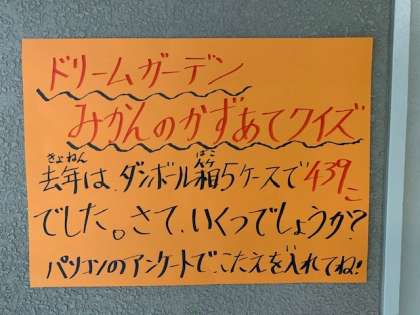 ドリームガーデン
みかんのかずあてクイズ
去年は、ダンボール箱5ケースで439こ
でした。さて、いくつでしょうか?
パソコンのアンケートで、こたえを入れてね!